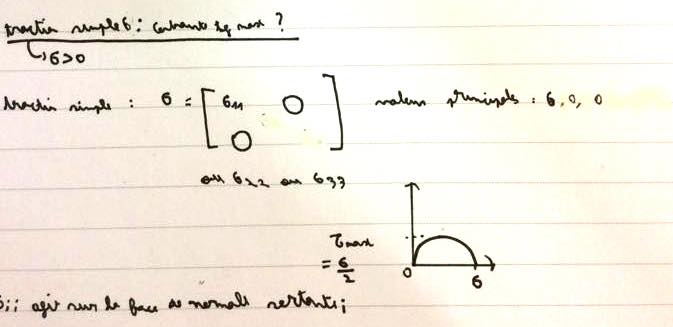 traction simple σ : contrainte tg max ?
↳ σ>0
traction simple : σ = [ σ11 0 0 ] valeurs principales : σ, 0, 0
ou σ22 ou σ33
τmax
= σ/2
0 σ
σii agit sur la face de normale sortante i